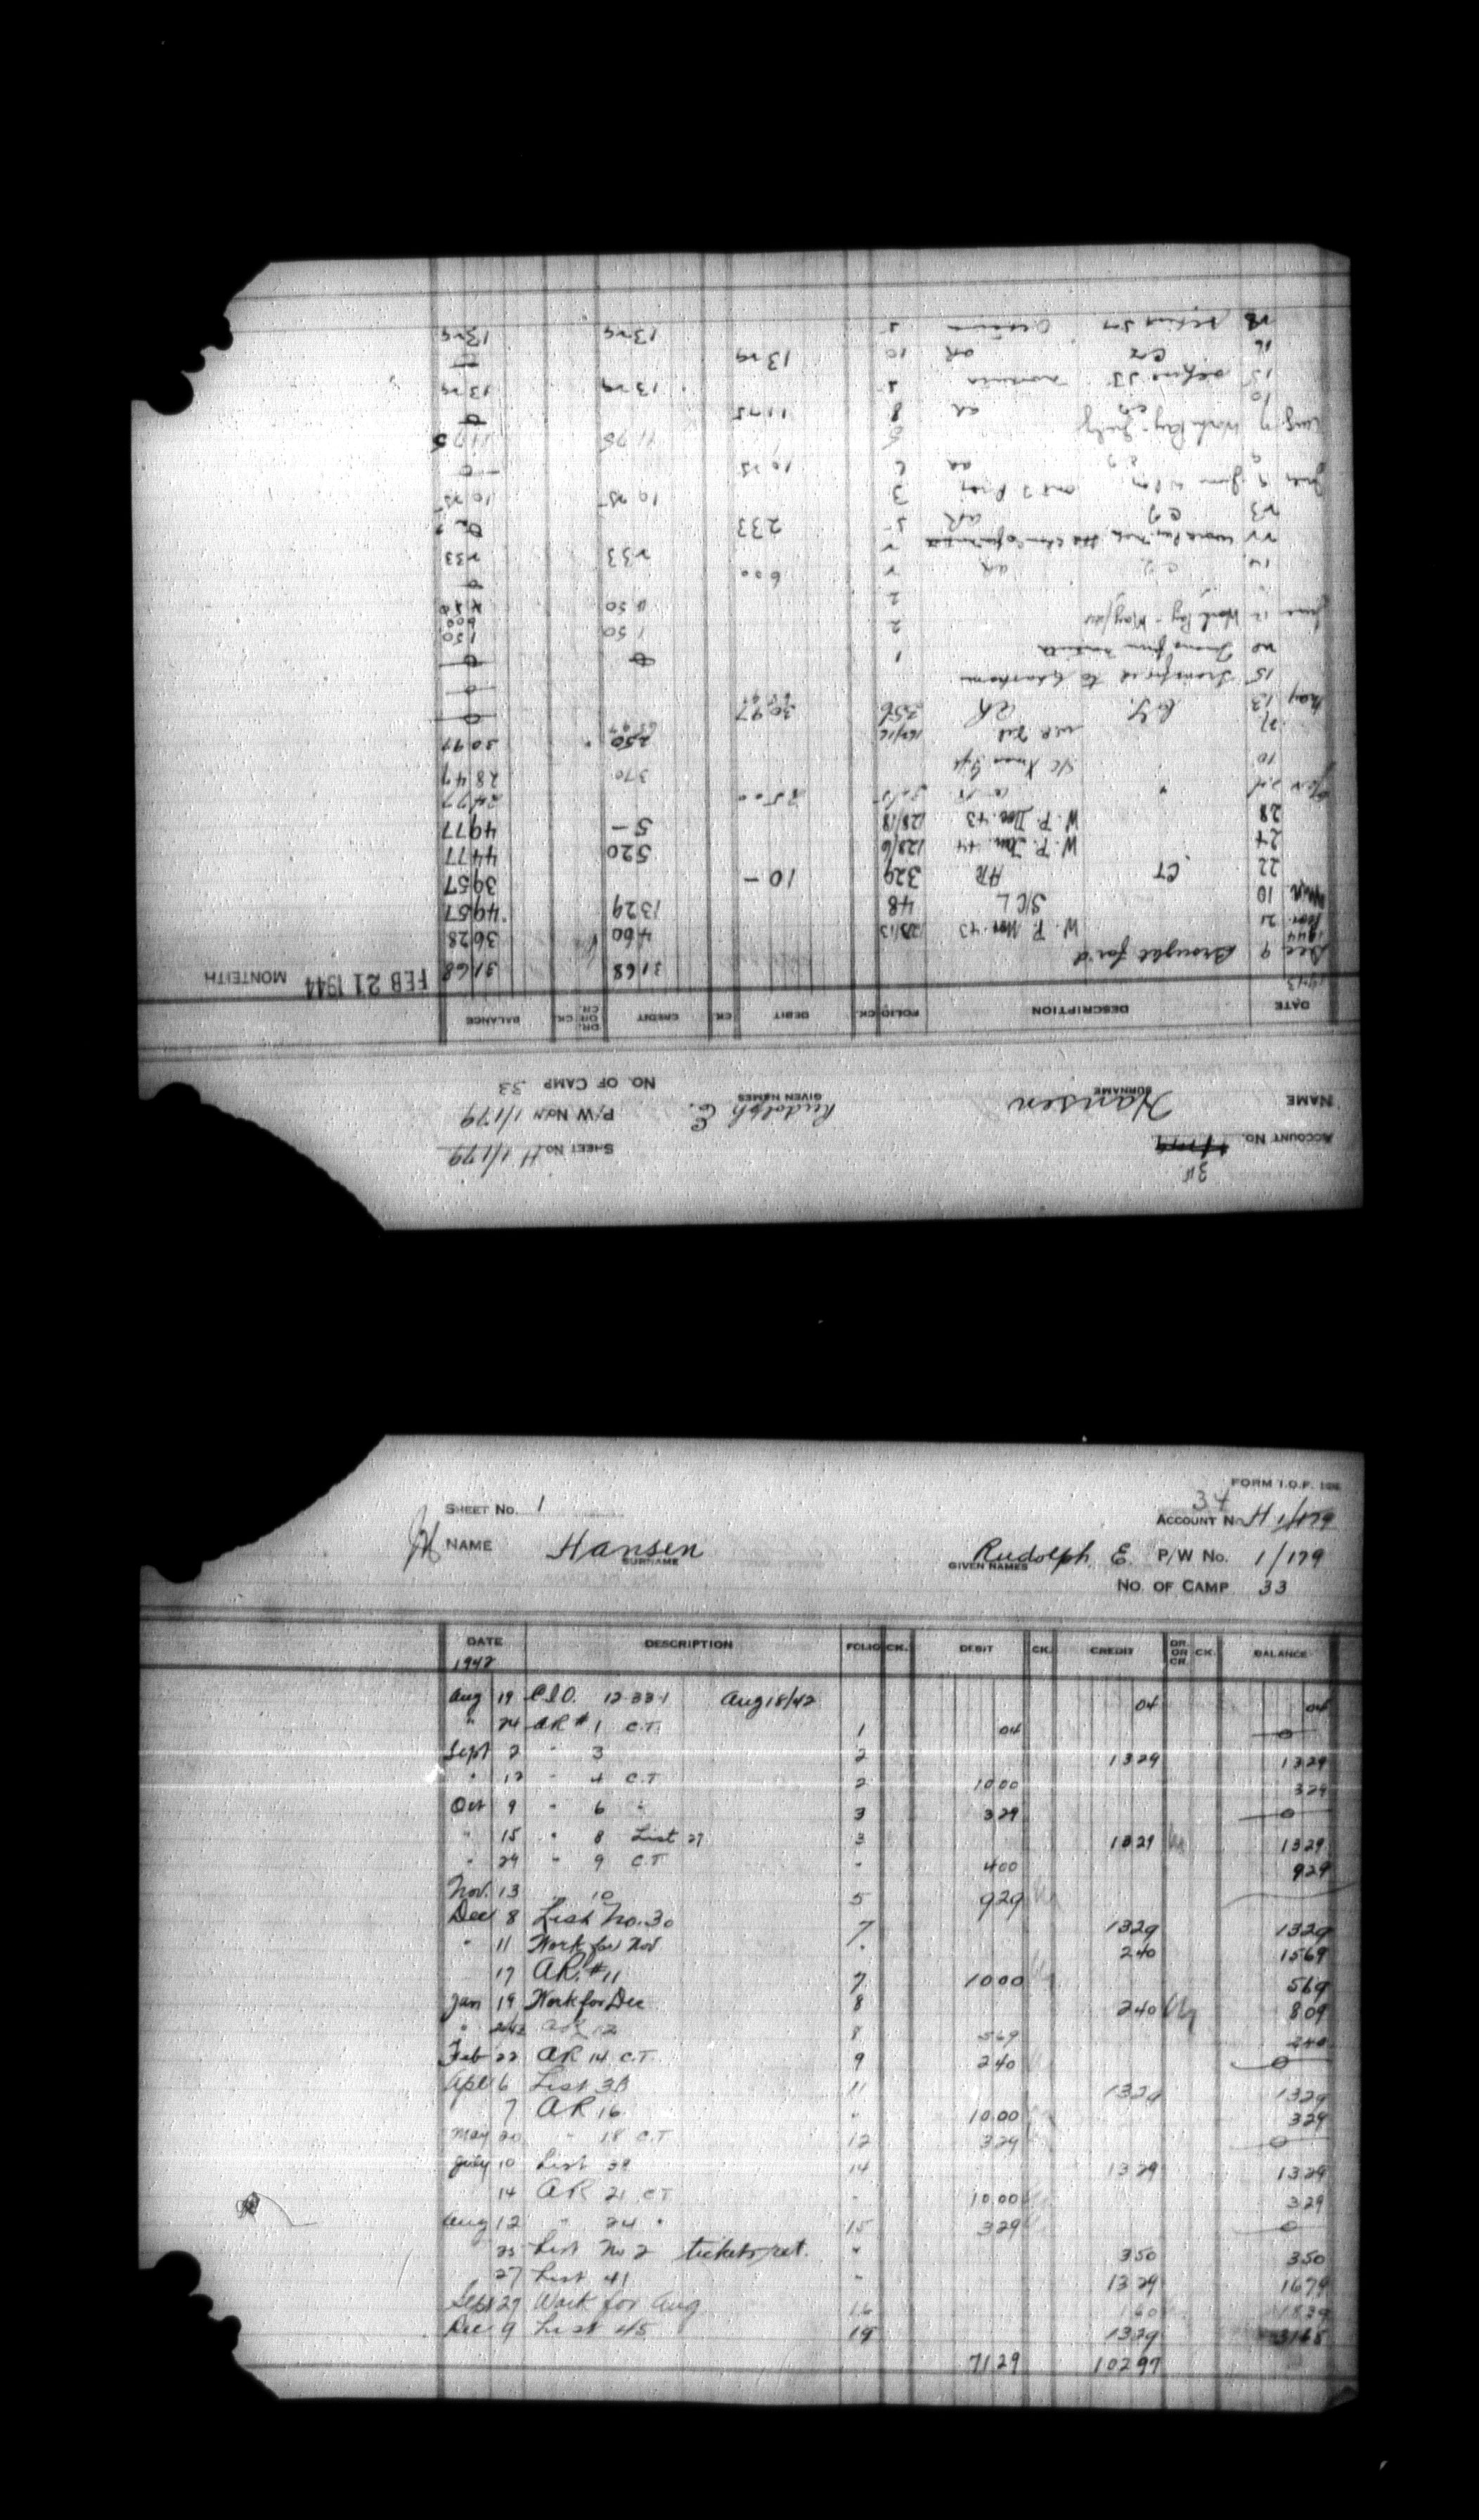 FORM I.O.F. 106
SHEET No. 1
34
ACCOUNT No. H 1/179
NAME Hansen Rudolph E. P/W No. 1/179
SURNAME GIVEN NAMES
No. OF CAMP 33
DATE DESCRIPTION FOLIO CK. DEBIT CK. CREDIT DR. OR CR. CK. BALANCE
1942
Aug 19 12-33-1 Aug 18/42 04 04
" 24 AR # 1 C.T. 1 04 0
Sept 2 " 3 2 1329 1329
" 12 " 4 C.T 2 1000 329
Oct 9 " 6 " 3 329 0
" 15 " 8 List 27 3 1329 1329
" 24 " 9 C.T " 400 929
Nov. 13 10 5 929
Dec 8 List No. 30 7 1329 1329
" 11 Work for Nov " 240 1569
17 AR. #11 7 1000 569
Jan 19 Work for Dec 8 240 809
" AR 12 8 569 240
Feb 22 AR 14 C.T. 9 240 0
Apl 6 List 11 1329 1329
7 AR 16 " 1000 329
May 20 " 18 C.T 12 329 0
July 10 List 39 14 1329 1329
14 AR 21 C.T " 1000 329
Aug 12 " 24 " 15 329 0
25 List No 2 tickets ret. " 350 350
27 List 41 " 1329 1679
Sept 27 Work for Aug 16 160 1839
Dec 9 List 45 19 1329 3168
7129 10297
34
ACCOUNT No. SHEET No. H 1/179
NAME Hansen Rudolph E. P/W No. 1/179
SURNAME GIVEN NAMES
NO. OF CAMP 33
DATE DESCRIPTION FOLIO CK. DEBIT CK. CREDIT DR. OR CR. CK. BALANCE
1943
Dec 9 Brought for'd 3168 3168 FEB 21 1944 MONTEITH
1944
21 W. P. Nov. 43 128/13 460 3628
10 S/C L 48 1329 4957
22 CT AR 329 10 - 3957
24 W. P. Jan. 44 128/6 520 4477
28 W. P. Dec. 43 128/18 5 - 4977
2500 2477
10 S/C Xmas Gift 370 2847
250 3097
May 13 C.T. AR 356 3097 0
15 Transferred to 0
20 Trans from 1 0 0
2 150 150
June 12 Work Pay - May/44 2 450 600
14 AR 2 600 0
22 2 233 233
23 AR 5 233 0
July 9 June 3 1075 1075
AR 6 1075 0
Aug 7 Work Pay - July 5 1175 1175
10 AR 8 1175 0
15 5 1329 1329
16 AR 10 1329
5 1329 1329